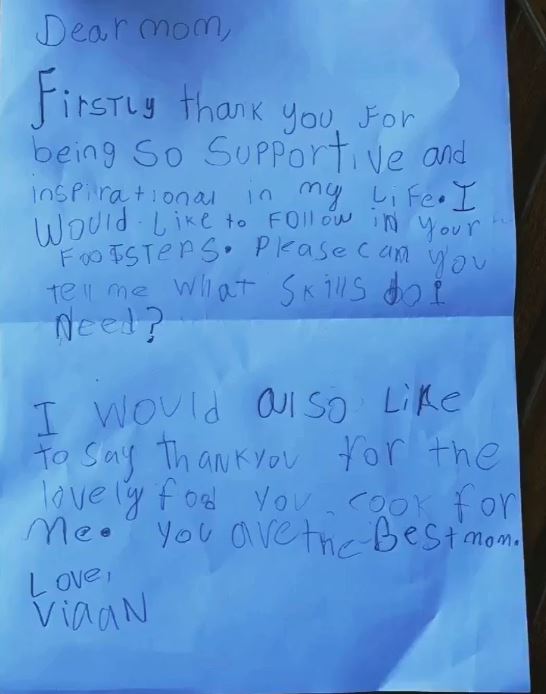 Dear mom,
Firstly thank you For
being So Supportive and
inspirational in my Life. I
Would Like to Follow in your
Footsteps. Please can you
tell me What Skills do I
Need?
I Would also Like
to Say thankyou for the
lovely food you cook for
Me. you are the Best mom.
Love,
Viaan